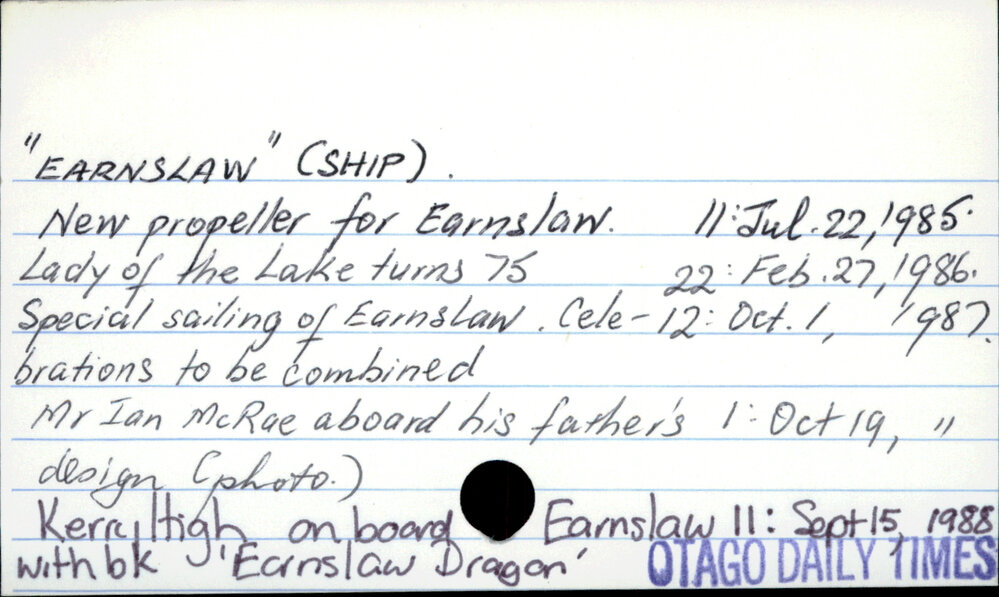 "EARNSLAW" (SHIP).
New propeller for Earnslaw. 11: Jul. 22, 1985.
Lady of the Lake turns 75 22: Feb. 27, 1986.
Special sailing of Earnslaw. Cele- 12: Oct. 1, 1987.
brations to be combined
Mr Ian McRae aboard his father's 1: Oct 19, "
design (photo.)
Kerry High on board Earnslaw 11: Sept 15, 1988
with bk 'Earnslaw Dragon'
OTAGO DAILY TIMES